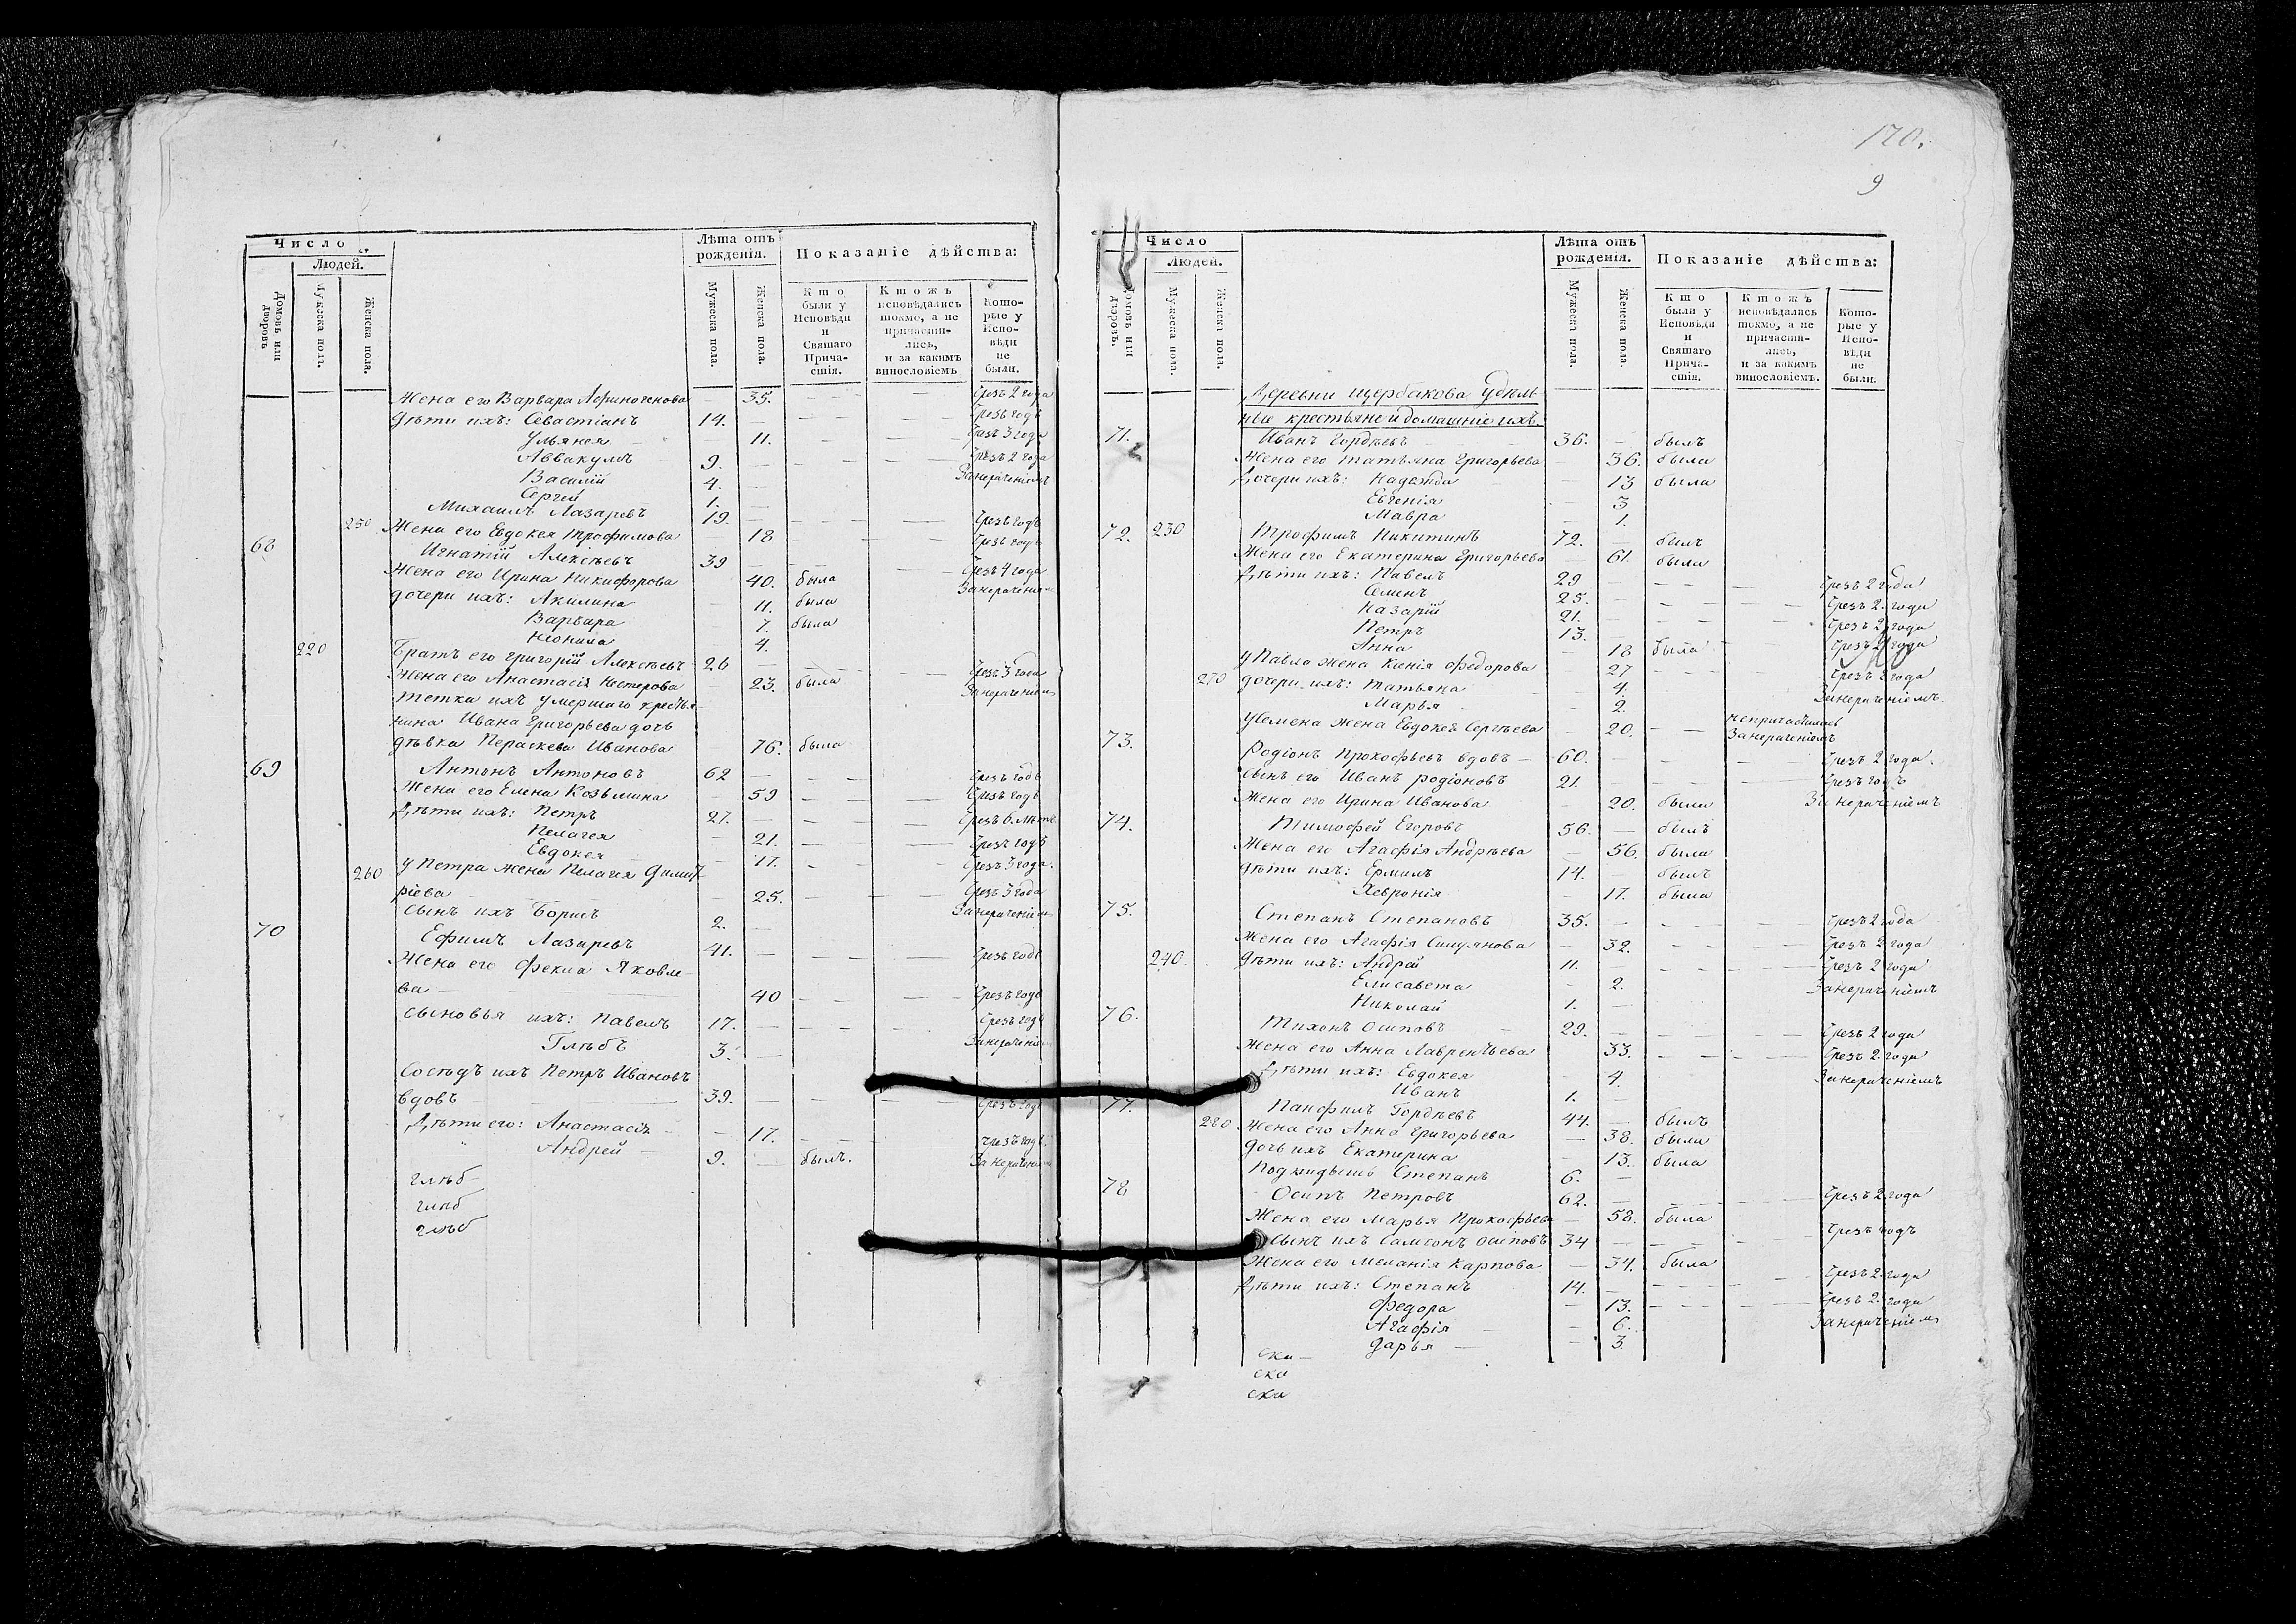 Число
Людей.
Домовъ или дворовъ
Мужеска пола.
Женска пола.
Лѣта отъ рожденія.
Мужеска пола.
Женска пола.
Показаніе дѣйства:
Кто были у Исповѣди и Святаго Причастія.
Ктожъ исповѣдались токмо, а не причастились, и за какимъ винословіемъ
Которые у Исповѣди не были.
Жена его Варвара Афиногенова — 35. — — — Чрезъ 2 года
Дѣти ихъ: Севастіанъ 14. — Чрезъ годъ
Ульянея — 11. — — — — Чрезъ 3 года
Аввакумъ 9. — — — — Чрезъ 2 года
Василій 4. — Занерачениемъ
Сергей 1. —
Михаилъ Лазаревъ 19. — — — Чрезъ годъ
250 Жена его Евдокея Трофимова — 18 — — — Чрезъ годъ
68 Игнатій Алексѣевъ 39 — — — — Чрезъ 4 года
Жена его Ирина Никифорова 40. была Занерачением
дочери ихъ: Акилина — 11. была
Варвара — 7. была
Неонила 4.
220 Братъ его Григорій Алексѣевъ 26 — — — — Чрезъ 3 года
Жена его Анастасія Нестерова — 23. была Занерачением
Тетка ихъ умершаго крестья-
нина Ивана Григорьева дочь
дѣвка Пераскева Иванова — 76. была
69 Антонъ Антоновъ 62 — — — Чрезъ годъ
Жена его Елена Козьмина — 59 — — — Чрезъ годъ
Дѣти ихъ: Петръ 27. — — — — Чрезъ 6. лѣтъ
Пелагея — 21. — — — — Чрезъ годъ
Евдокея — 17. — — — Чрезъ 3 года.
260 У Петра жена Пелагея Димит-
ріева — 25. — — — Чрезъ 3 года
Сынъ ихъ Борисъ 2. — Занерачением
70 Ефимъ Лазаревъ 41. — — — — Чрезъ годъ
Жена его Фекла Яковле-
ва — 40 — — — — Чрезъ годъ
Сыновья ихъ: Павелъ 17. — — — — Чрезъ годъ
Глѣбъ 3. — Занерачением
Сосѣдъ ихъ Петръ Ивановъ
вдовъ 39. — — — — Чрезъ годъ
Дѣти его: Анастасія — 17. — — Чрезъ годъ.
Андрей 9. — былъ. Занерачением
глѣб-
глѣб
глѣб
170.
9
Число
Людей.
Домовъ или дворовъ.
Мужеска пола.
Женска пола.
Лѣта отъ рожденія.
Мужеска пола.
Женска пола.
Показаніе дѣйства:
Кто были у Исповѣди и Святаго Причастія.
Ктожъ исповѣдались токмо, а не причастились, и за какимъ винословіемъ.
Которые у Исповѣди не были.
Деревни Щербакова Удѣль-
ные крестьяне и домашніе ихъ.
71. Иванъ Гордѣевъ 36. — былъ
Жена его Татьяна Григорьева — 36. была
Дочери ихъ: Надежда — 13 была
Евгенія — 3
Мавра — 1.
72. 230 Трофимъ Никитинъ 72. — былъ
Жена его Екатерина Григорьева — 61. была
Дѣти ихъ: Павелъ 29 — — — — Чрезъ 2 года
Семенъ 25. — — — — Чрезъ 2. года
Назарій 21. — — — — Чрезъ 2 года
Петръ 13. — — — — Чрезъ 2 года
Анна — 18 была
У Павла жена Ксенія Федорова — 27 Чрезъ 2 года
270 дочери ихъ: Татьяна — 4. Занерачениемъ
Марья — 2.
У Семена жена Евдокея Сергѣева — 20. — — непричастилась Занерачениемъ
73. Родіонъ Прокофьевъ вдовъ — 60. — — — — Чрезъ 2 года.
Сынъ его Иванъ Родіоновъ 21. — — — Чрезъ годъ
Жена его Ирина Иванова — 20. была Занерачениемъ
74. Тимофей Егоровъ 56. — былъ
Жена его Агафія Андрѣева — 56. была
Дѣти ихъ: Ермилъ 14. — былъ
Хевронія — 17. была
75. Степанъ Степановъ 35. — — — — Чрезъ 2 года
Жена его Агафія — 32. — — — — Чрезъ 2 года
240. Дѣти ихъ: Андрей 11. — — — — Чрезъ 2 года
Елисавета — 2. Занерачениемъ
Николай 1. —
76. Тихонъ Осиповъ 29. — — — — Чрезъ 2 года
Жена его Анна Лаврентьева 33. — — — Чрезъ 2. года
Дѣти ихъ: Евдокея — 4. Занерачениемъ
Иванъ 1. —
77. Панфилъ Гордѣевъ 44. — былъ
280. Жена его Анна Григорьева — 38. была
Дочь ихъ Екатерина — 13. была
Подкидышъ Степанъ 6. —
78 Осипъ Петровъ 62. — — — Чрезъ 2 года
Жена его Марья Прокофьева — 58. была
Сынъ ихъ Самсонъ Осиповъ 34 — — — — Чрезъ годъ
Жена его Меланія Карпова — 34. была
Дѣти ихъ: Степанъ 14. — — — — Чрезъ 2. года
Федора — 13. — — — — Чрезъ 2. года
Агафія — 6. Занерачением
Дарья — 3.
ска-
ска
ска